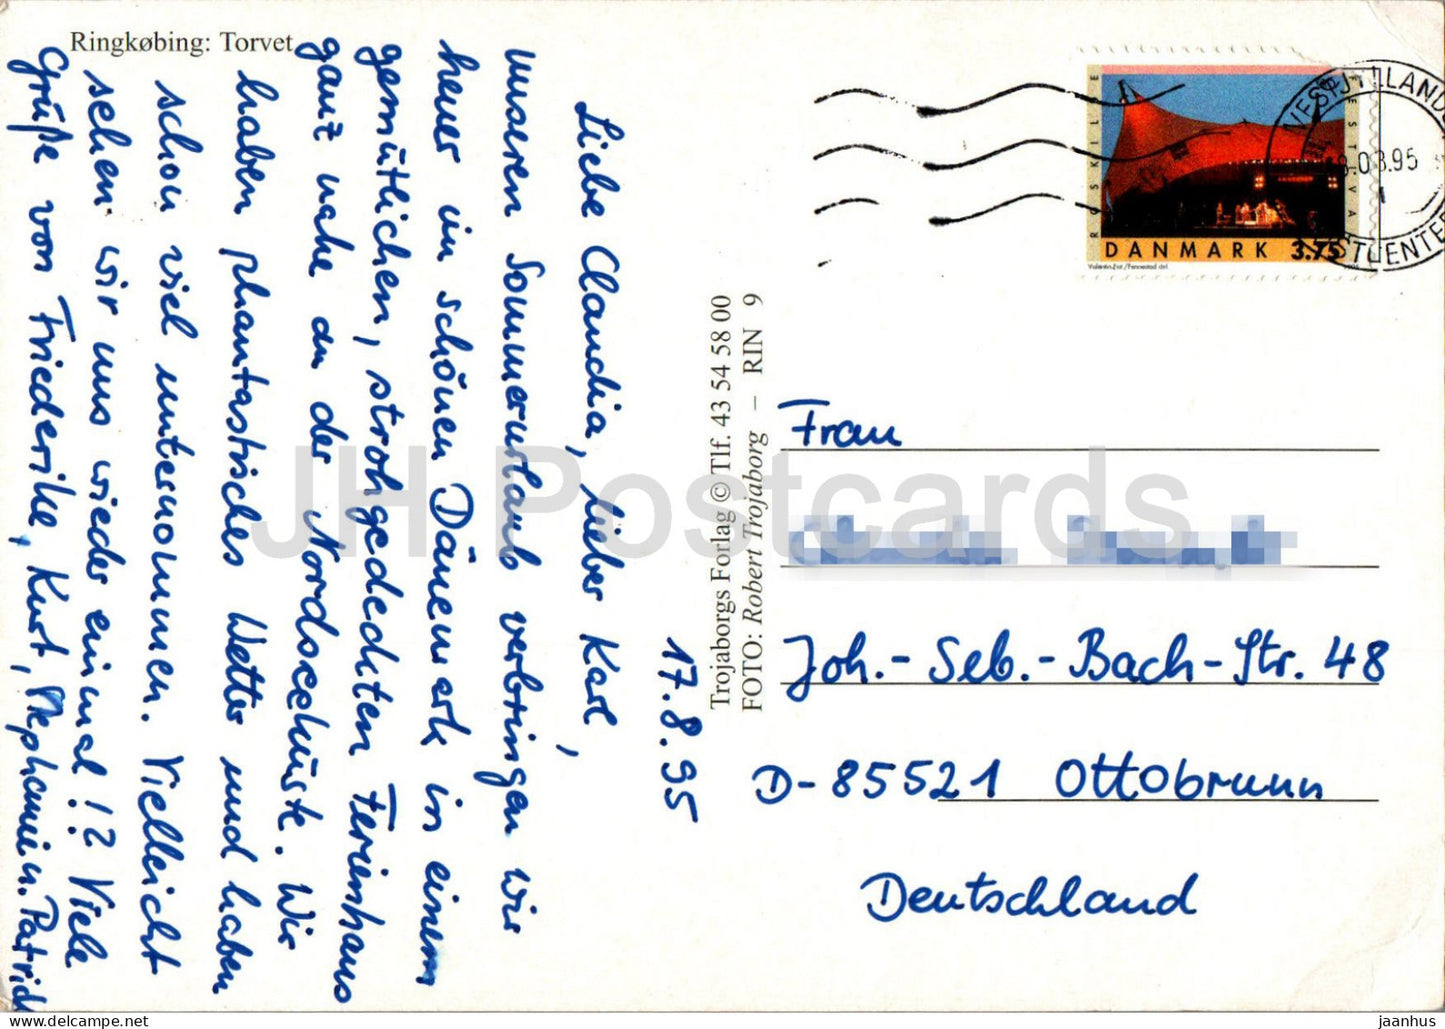 Ringkøbing: Torvet
17.8.95
Liebe Claudia, lieber Karl,
unseren Sommerurlaub verbringen wir
heuer im schönen Dänemark in einem
gemütlichen, strohgedeckten Ferienhaus
ganz nahe an der Nordseeküste. Wir
haben phantastisches Wetter und haben
schon viel unternommen. Vielleicht
sehen wir uns wieder einmal!? Viele
Grüße von Friederike, Kurt, Stephanie u. Patrick
Trojaborgs Forlag © Tlf. 43 54 58 00
FOTO: Robert Trojaborg – RIN 9
ROSKILDE
FESTIVAL
DANMARK 3.75
VESTJYLLANDS
18.08.95
POSTCENTER
Frau
Joh.-Seb.-Bach-Str. 48
D-85521 Ottobrunn
Deutschland
JH Postcards
https://jhpostcards.com
jaanhus